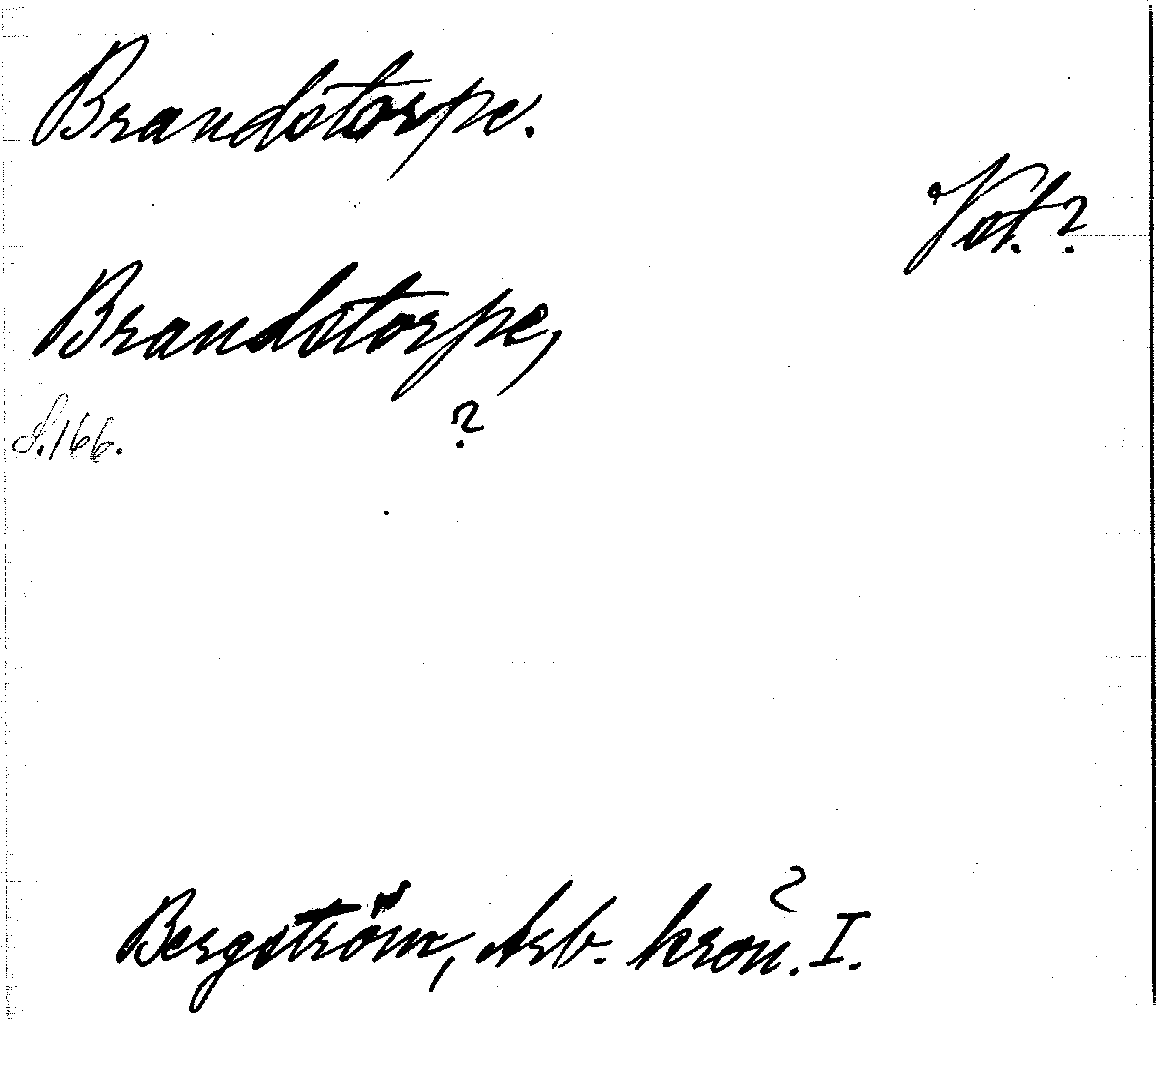 Brandstorpe.
Vot.?
Brandstorpe,
S. 166.
?
Bergström, Arb. kron. I.